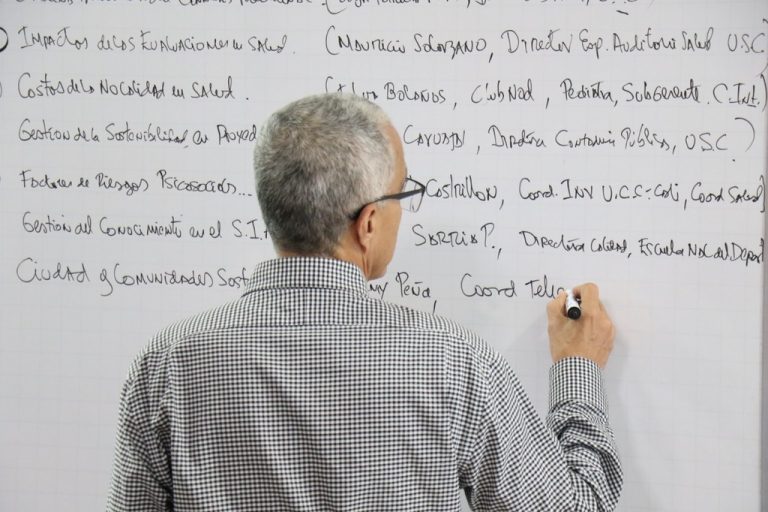 Impactos de las Evaluaciones en Salud. (Mauricio Solorzano, Director Esp. Auditoria Salud USC)
Costos de la No calidad en Salud. Bolaños, Club Noel, Pediatra, Subgerente C. Int.)
Gestion de la Sostenibilidad en Proyec Directora Contaduria Pública, USC.)
Factores de Riesgos Psicosociales... Castrillon, Coord. Inv U.C.C. Cali, Coord Salud)
Gestión del Conocimiento en el S.I. P., Directora Calidad, Escuela Nac del Deport
Ciudad y Comunidades Sost my Peña, Coord Tele